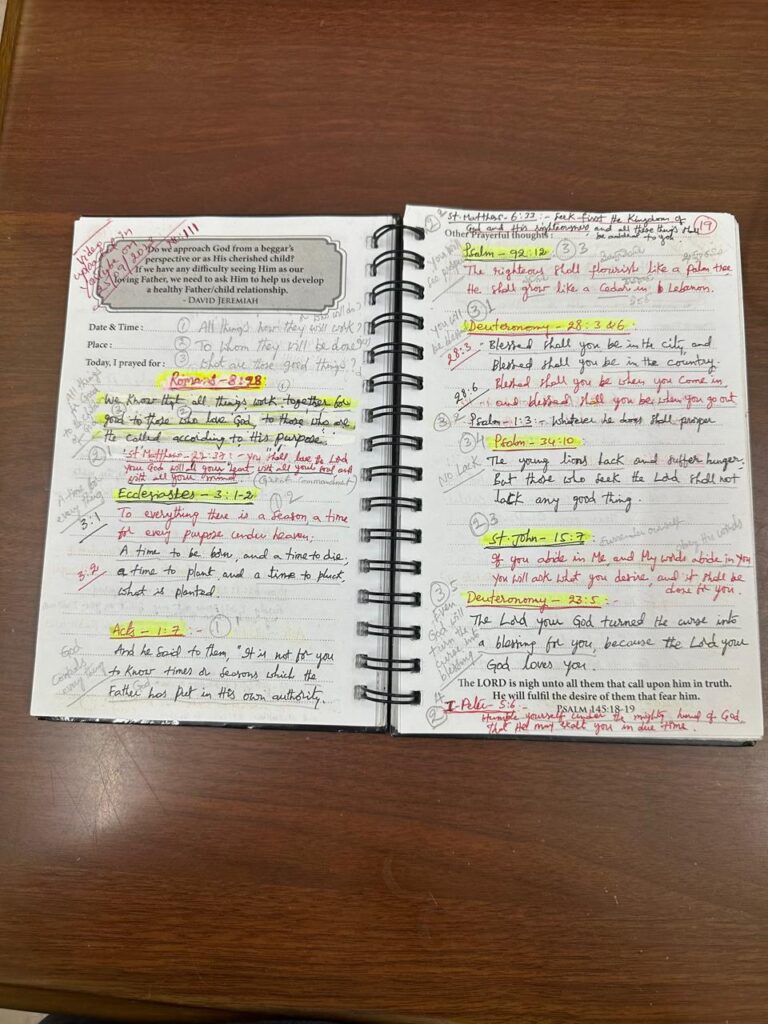 Video
in
Youtube on
Do we approach God from a beggar's
perspective or as His cherished child?
If we have any difficulty seeing Him as our
loving Father, we need to ask Him to help us develop
a healthy Father/child relationship.
- DAVID JEREMIAH
Date & Time : ① All things how they will work?
Place : ② To whom they will be done?
Today, I prayed for : ③ What are those good things?
Romans - 8:28
We know that all things work together for
good to those who love God, to those who are
the called according to His purpose.
② 1 "St Matthew - 22:37: - You shall love the Lord
your God with all your heart with all your soul and
with all your mind." (Greatest Commandment)
Ecclesiastes - 3:1-2 ① 2
A time for
every thing
3:1 To everything there is a season, a time
for every purpose under heaven;
A time to be born, and a time to die;
3:2 a time to plant, and a time to pluck,
what is planted
Acts - 1:7 :- ① 1
God
Controls
every thing
And he said to them, "It is not for you
to know times or seasons which the
Father has put in His own authority.
② 2 St. Matthew - 6:33 :- Seek first the Kingdom of
God and His righteousness and all these things shall
be added to you.
19
Other Prayerful thoughts :
Psalm - 92:12 ③ 3
The righteous shall flourish like a palm tree
He shall grow like a Cedar in Lebanon.
③ 1
Deuteronomy - 28:3 & 6 :
28:3 - Blessed shall you be in the city, and
Blessed shall you be in the country.
28:6 Blessed shall you be when you come in,
and blessed shall you be when you go out
③ 2 Psalm - 1:3 :- Whatever he does shall prosper
③ 4 Psalm - 34:10 :
No Lack
The young lions lack and suffer hunger;
But those who seek the Lord shall not
lack any good thing.
② 3
St. John - 15:7 : Surrender
If you abide in Me, and My words abide in You
You will ask what you desire, and it shall be
done for you.
Deuteronomy - 23:5 :-
③ 5
Even
God will
turn the
curse into
blessing
The Lord your God turned the curse into
a blessing for you, because the Lord your
God loves you.
The LORD is nigh unto all them that call upon him in truth.
He will fulfil the desire of them that fear him.
PSALM 145:18-19
② 4 I-Peter - 5:6 :-
Humble yourself under the mighty hand of God,
that He may exalt you in due time.